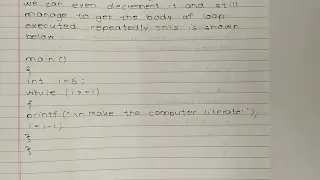 we can even decrement it and still
manage to get the body of loop
executed repeatedly this is shown
below
main()
{
int i=5;
while (i>=1)
{
printf("\n Make the computer literate!");
i=i-1;
}
}